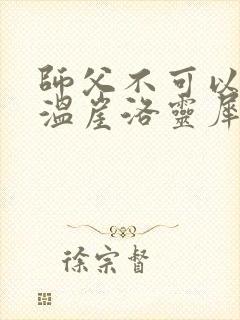 師父不可以
溫崖洛靈犀
徐宗督